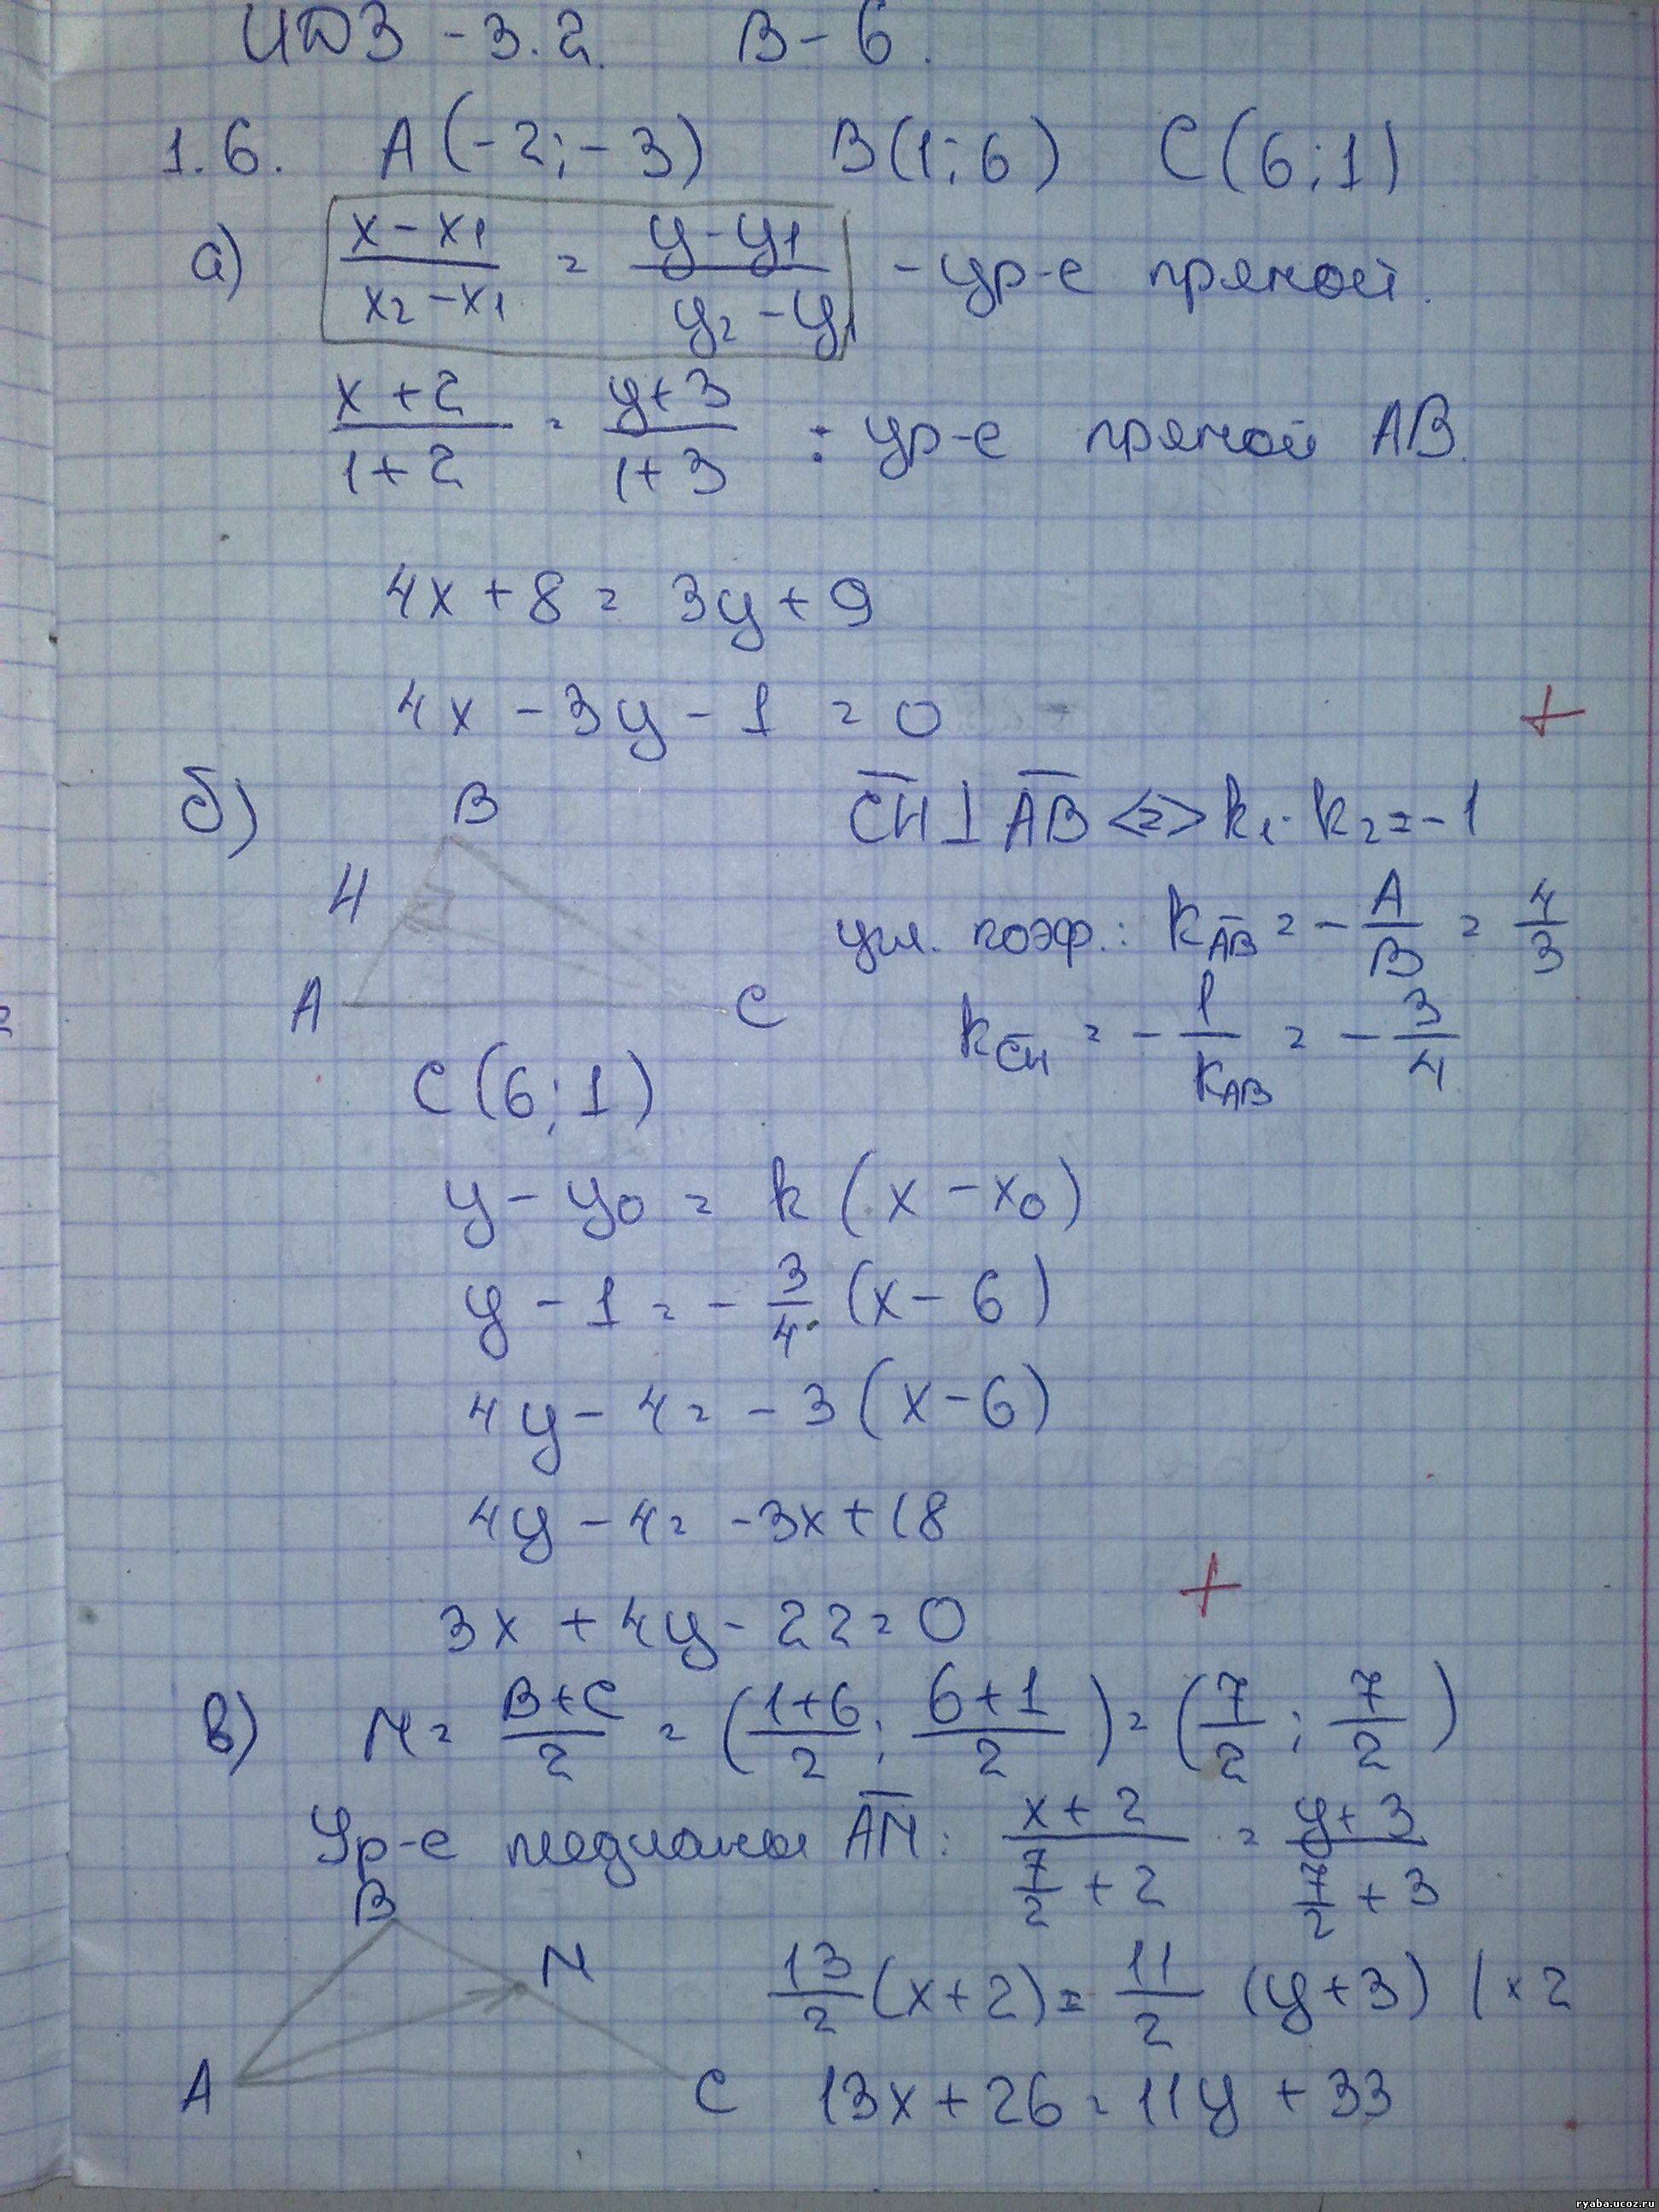 ИДЗ - 3.2. В - 6.
1.6. A(-2; -3) B(1; 6) C(6; 1)
а) (x - x1)/(x2 - x1) = (y - y1)/(y2 - y1) - ур-е прямой.
(x + 2)/(1 + 2) = (y + 3)/(1 + 3) : ур-е прямой AB.
4x + 8 = 3y + 9
4x - 3y - 1 = 0 +
б) B
H
A C
CH ⊥ AB <=> k1 · k2 = -1
угл. коэф.: kAB = - A/B = 4/3
kCH = - 1/kAB = - 3/4
C(6; 1)
y - y0 = k(x - x0)
y - 1 = - 3/4 (x - 6)
4y - 4 = -3(x - 6)
4y - 4 = -3x + 18
3x + 4y - 22 = 0 +
в) M = (B + C)/2 = ((1 + 6)/2; (6 + 1)/2) = (7/2; 7/2)
Ур-е медианы AM: (x + 2)/(7/2 + 2) = (y + 3)/(7/2 + 3)
B
M
A C
13/2 (x + 2) = 11/2 (y + 3) | × 2
13x + 26 = 11y + 33
ryaba.ucoz.ru